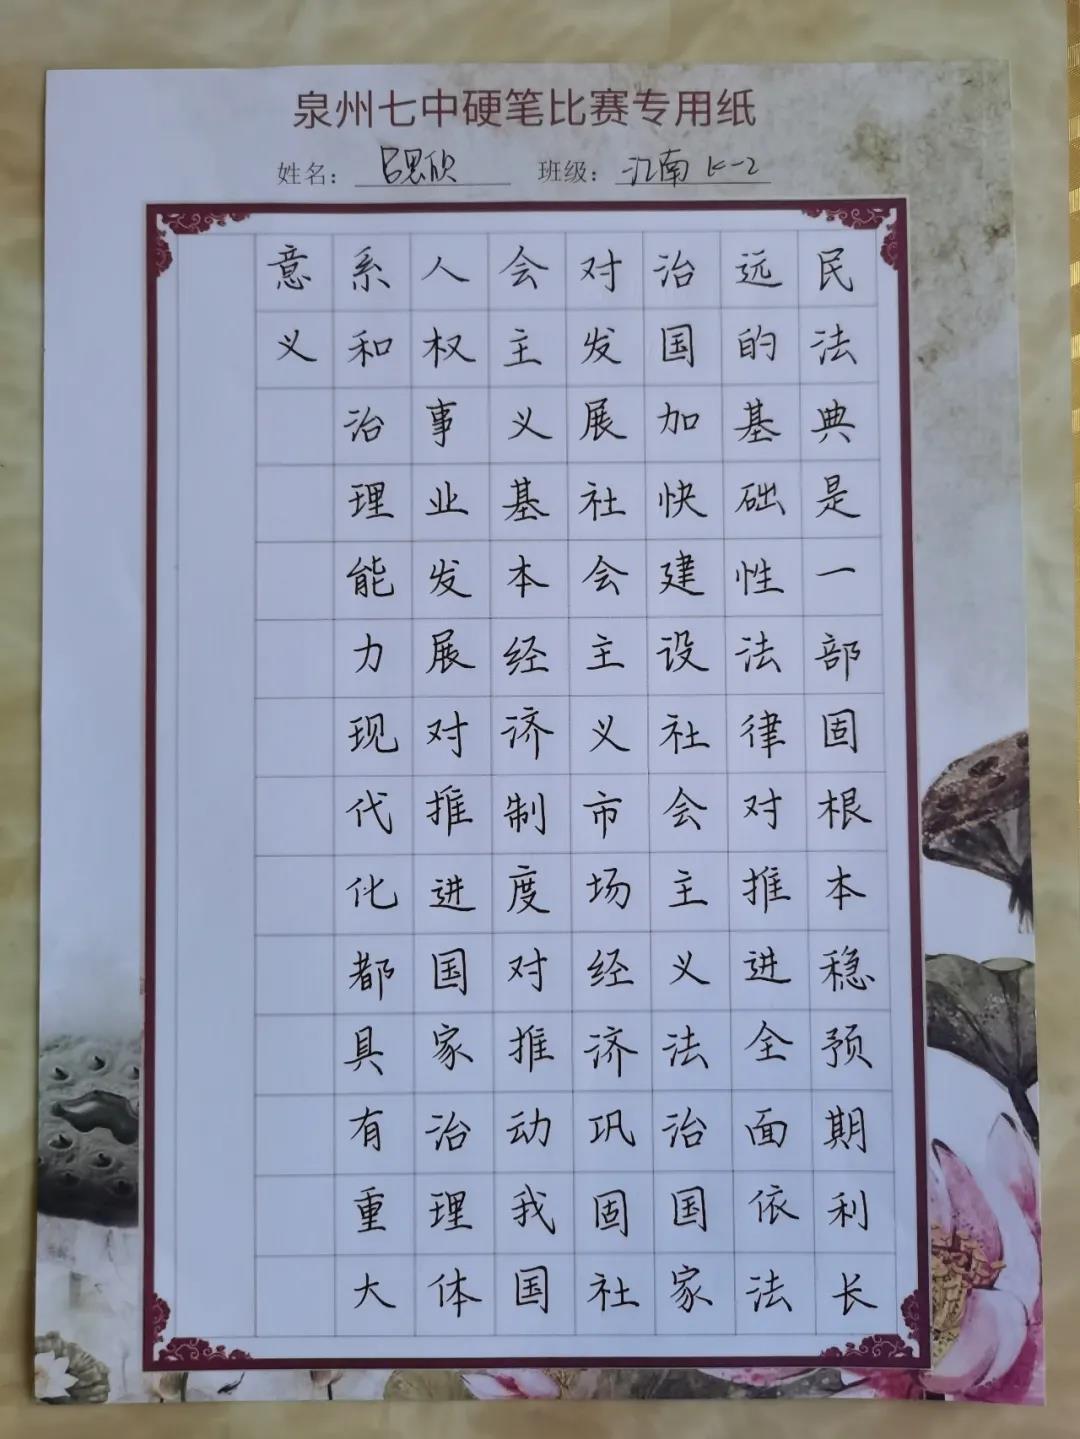 泉州七中硬笔比赛专用纸
姓名： 吕思欣 班级： 江南 1<-2
民法典是一部固根本稳预期利长
远的基础性法律对推进全面依法
治国加快建设社会主义法治国家
对发展社会主义市场经济巩固社
会主义基本经济制度对推动我国
人权事业发展对推进国家治理体
系和治理能力现代化都具有重大
意义